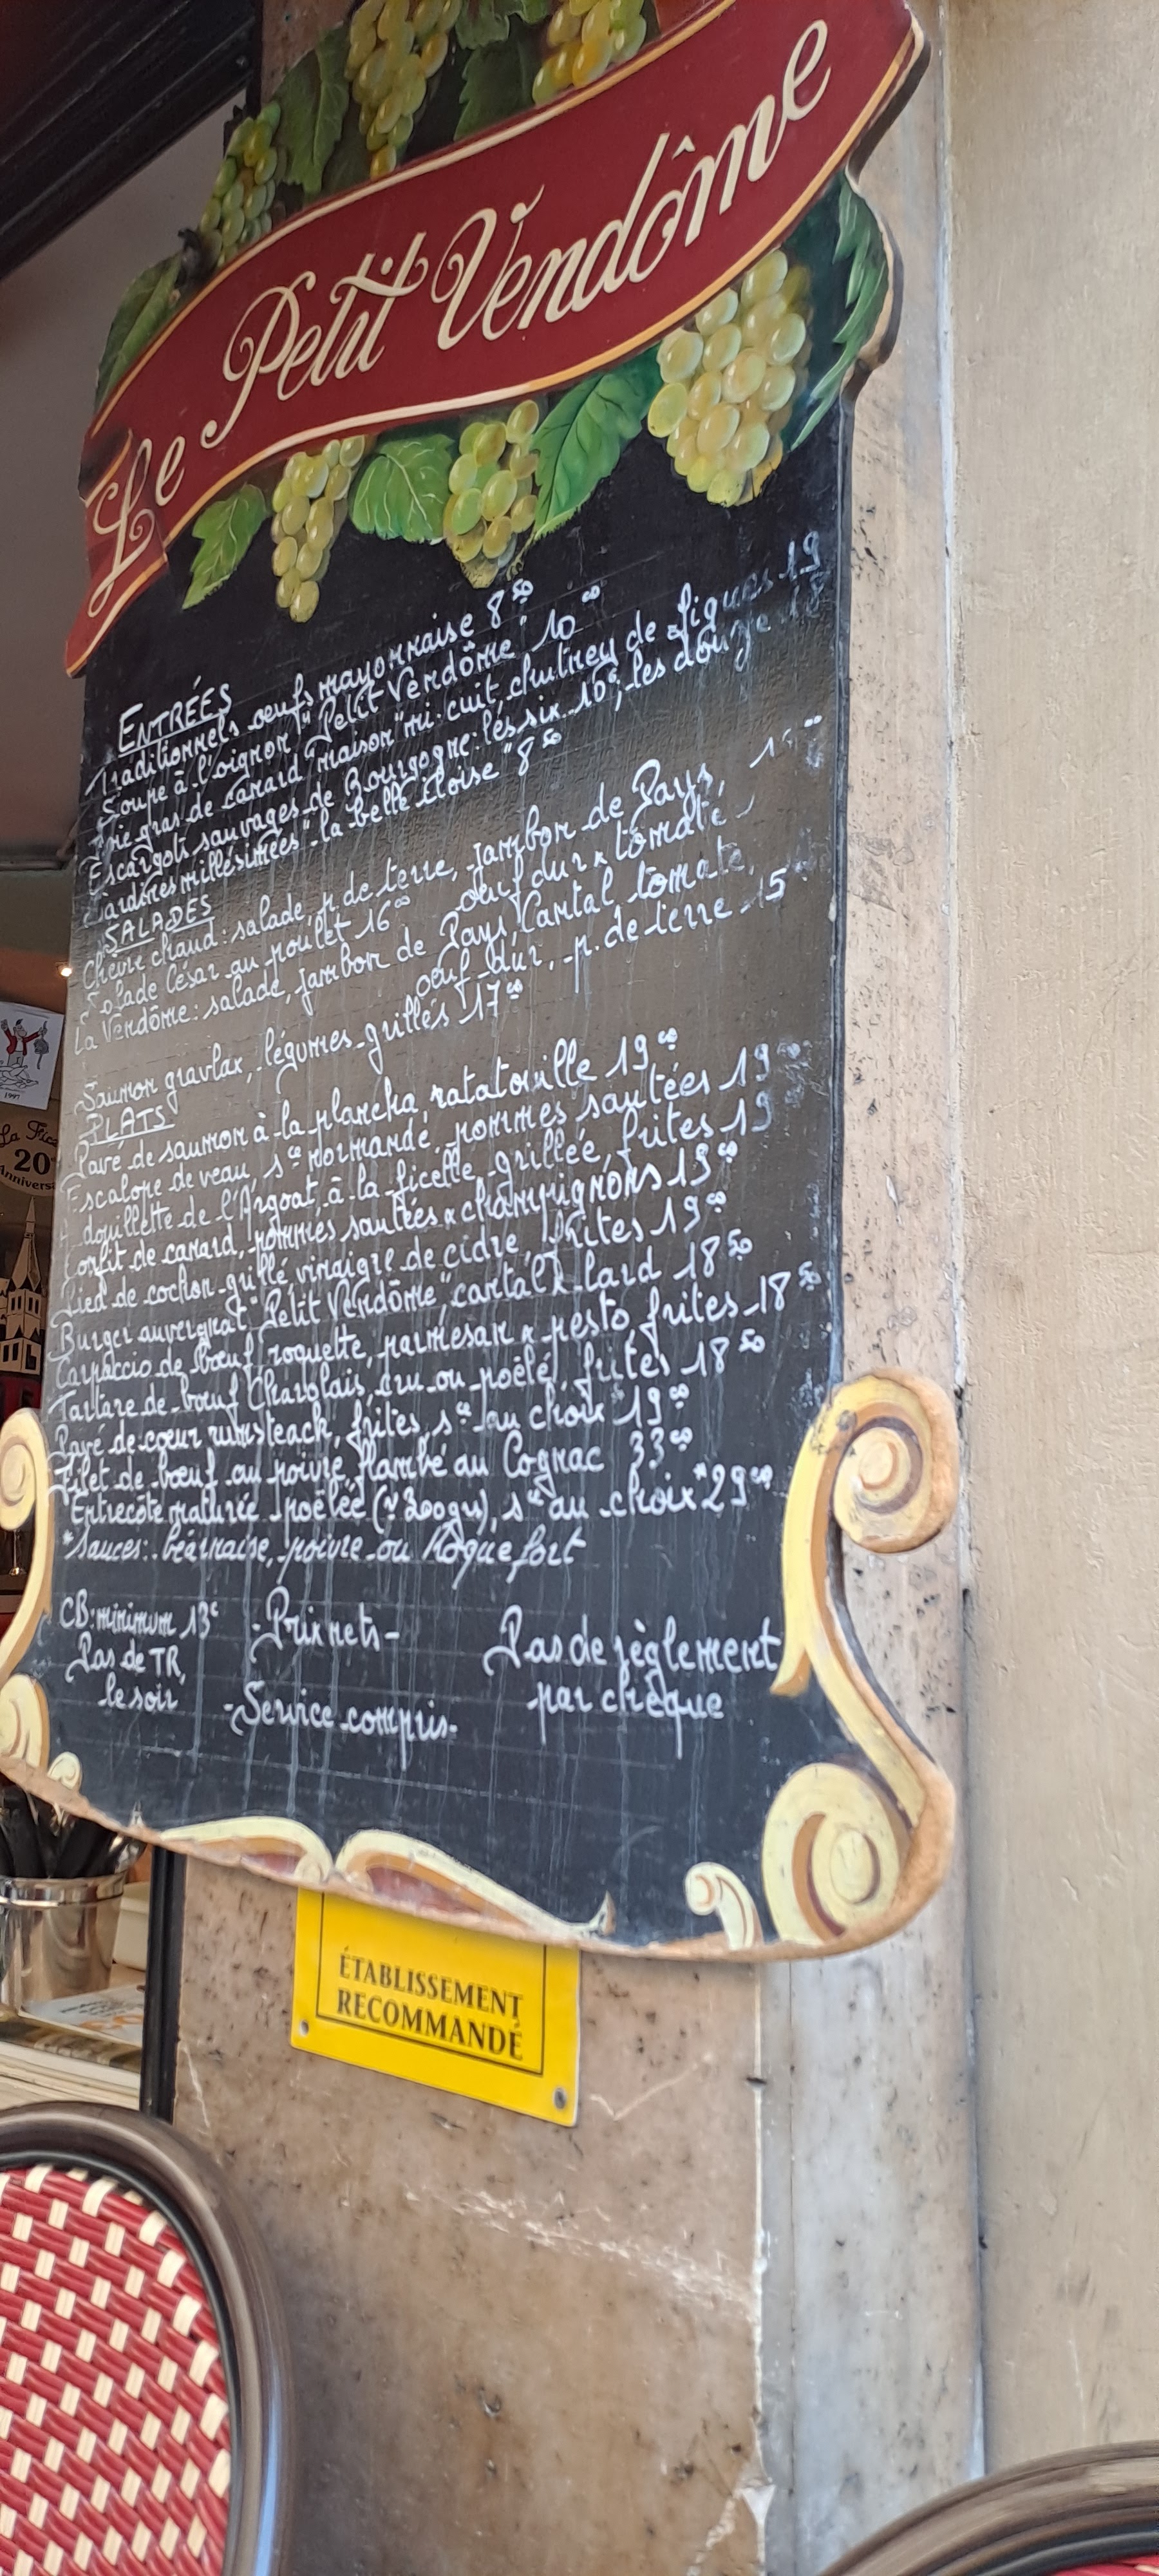 Le Petit Vendôme
ENTRÉES
Traditionnels oeufs mayonnaise 8 50
Soupe à l'oignon "Petit Vendôme" 10 00
Foie gras de canard "maison" mi-cuit, chutney de figues 19
Escargots sauvages de Bourgogne: les six 10€, les douze 18
Sardines millésimées "la belle Iloise" 8 50
SALADES
Chèvre chaud: salade, p. de terre, jambon de Pays,
oeuf dur & tomate
Salade César au poulet 16 00
La Vendôme: salade, jambon de Pays, Cantal, tomate,
oeuf dur, p. de terre 15
Saumon gravlax, légumes grillés 17 00
PLATS
Pavé de saumon à la plancha, ratatouille 19 00
Escalope de veau, sce normande, pommes sautées 19
Andouillette de l'Argoat à la ficelle grillée, frites 19
Confit de canard, pommes sautées & champignons 19 00
Pied de cochon grillé vinaigre de cidre, frites 19 00
Burger auvergnat "Petit Vendôme", cantal & lard 18 50
Carpaccio de boeuf, roquette, parmesan & pesto, frites 18 50
Tartare de boeuf Charolais, cru ou poêlé, frites 18 50
Pavé de coeur rumsteack, frites, sce au choix 19 00
Filet de boeuf au poivre flambé au Cognac 33 00
Entrecôte maturée poêlée (~ 300gr), sce au choix* 29 00
*Sauces: béarnaise, poivre ou Roquefort
CB: minimum 13€
Pas de TR,
le soir
-Prix nets-
-Service compris-
Pas de règlement
par chèque
ÉTABLISSEMENT
RECOMMANDÉ
1997
20